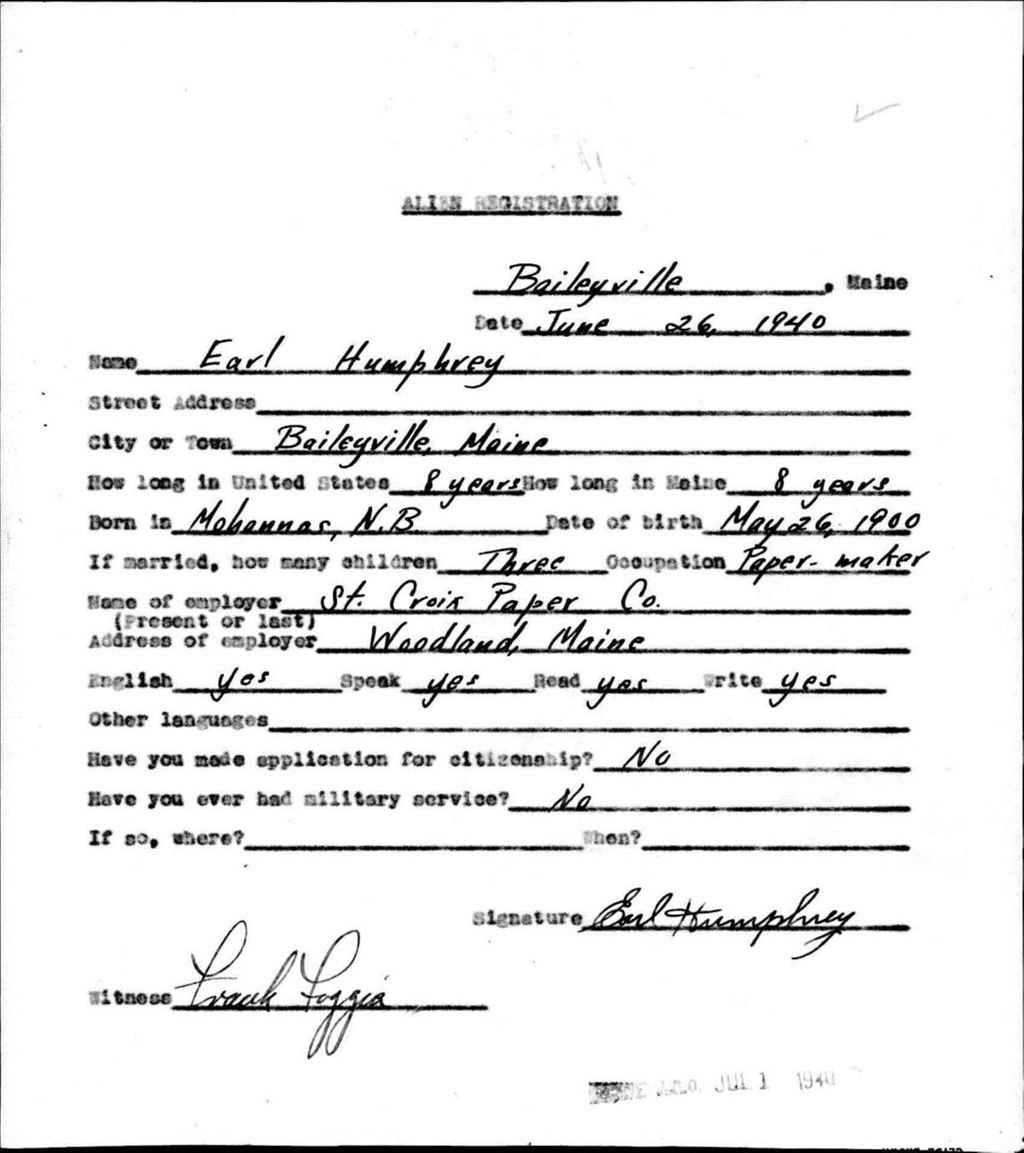 ALIEN REGISTRATION
Baileyville, Maine
Date June 26, 1940
Name Earl Humphrey
Street Address
City or Town Baileyville, Maine
How long in United States 8 years How long in Maine 8 years
Born in Mohannas, N.B. Date of birth May 26, 1900
If married, how many children Three Occupation Paper-maker
Name of employer St. Croix Paper Co.
(Present or last)
Address of employer Woodland, Maine
English yes Speak yes Read yes Write yes
Other languages
Have you made application for citizenship? No
Have you ever had military service? No
If so, where? When?
Signature Earl Humphrey
Witness Frank Foggia
A.G.O. JUL 1 1940